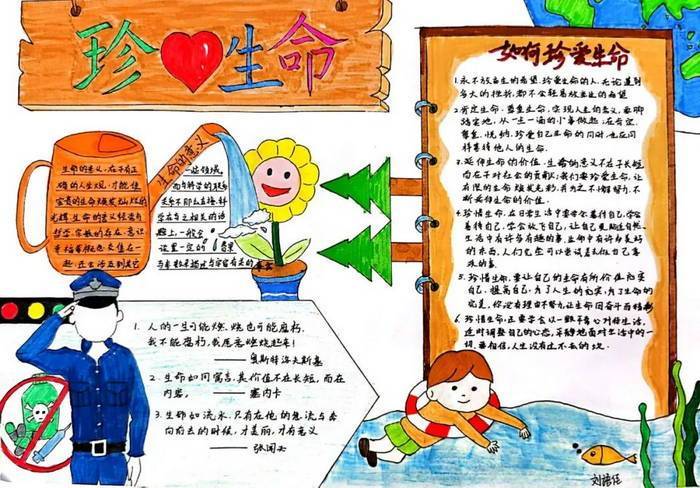 珍生命
生命的意义
生命的意义,在于有正
确的人生观,才能使
宝贵的生命焕发灿烂的
光辉,生命的意义经常与
哲学、宗教的存在、意识
一些领域。
1. 人的一生可能燃烧也可能腐朽,
我不能腐朽,我愿意燃烧起来!
——奥斯特洛夫斯基
2. 生命如同寓言,其价值不在长短,而在
内容。——塞内卡
3. 生命如流水,只有在他的急流与奔
向前去的时候,才美丽,才有意义
——张闻天
如何珍爱生命
1. 永不放弃生的希望。珍爱生命的人,无论遭到
多大的挫折,都不会轻易放弃生的希望
2. 肯定生命,尊重生命,实现人生的意义,要脚
踏实地,从一点一滴的小事做起,在肯定、
尊重、悦纳、珍爱自己生命的同时,也在同
样善待他人的生命.
3. 延伸生命的价值,生命的意义不在于长短
而在于对社会的贡献,我们要珍爱生命,让
有限的生命焕发光彩,并为之不懈努力,不
断延伸生命的价值.
4. 珍惜生命,在日常生活中要学会善待自己,学会
善待自己,学会放飞自己,让自己
生活中有许多有趣的事,生命中有许多美好
的东西,人们
5. 珍惜生命,要让自己的生命有所价值,充实
自己,提高自己,为了人生的充实,为了生命的
完美,你没有理由不努力,让生命因奋斗而精彩
6. 珍惜生命,还要学会以一颗平常心对待生活,
适时调整自己的心态,平静地面对生活中的一
切,要相信,人生没有过不去的坎.